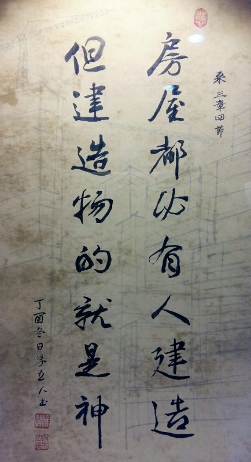 来三章四節
房屋都必有人建造
但建造物的就是神
丁酉冬日